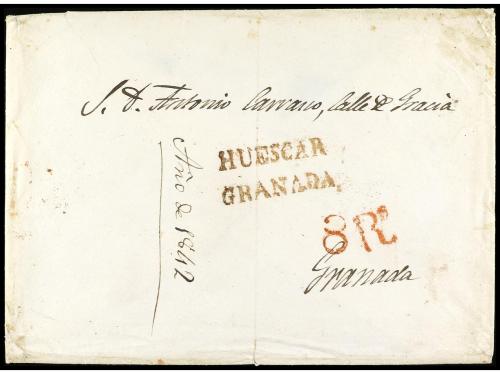 S. D. Antonio Carrasco, Calle de Gracia
HUESCAR
GRANADA,
8 Rs
Granada
Año de 1842